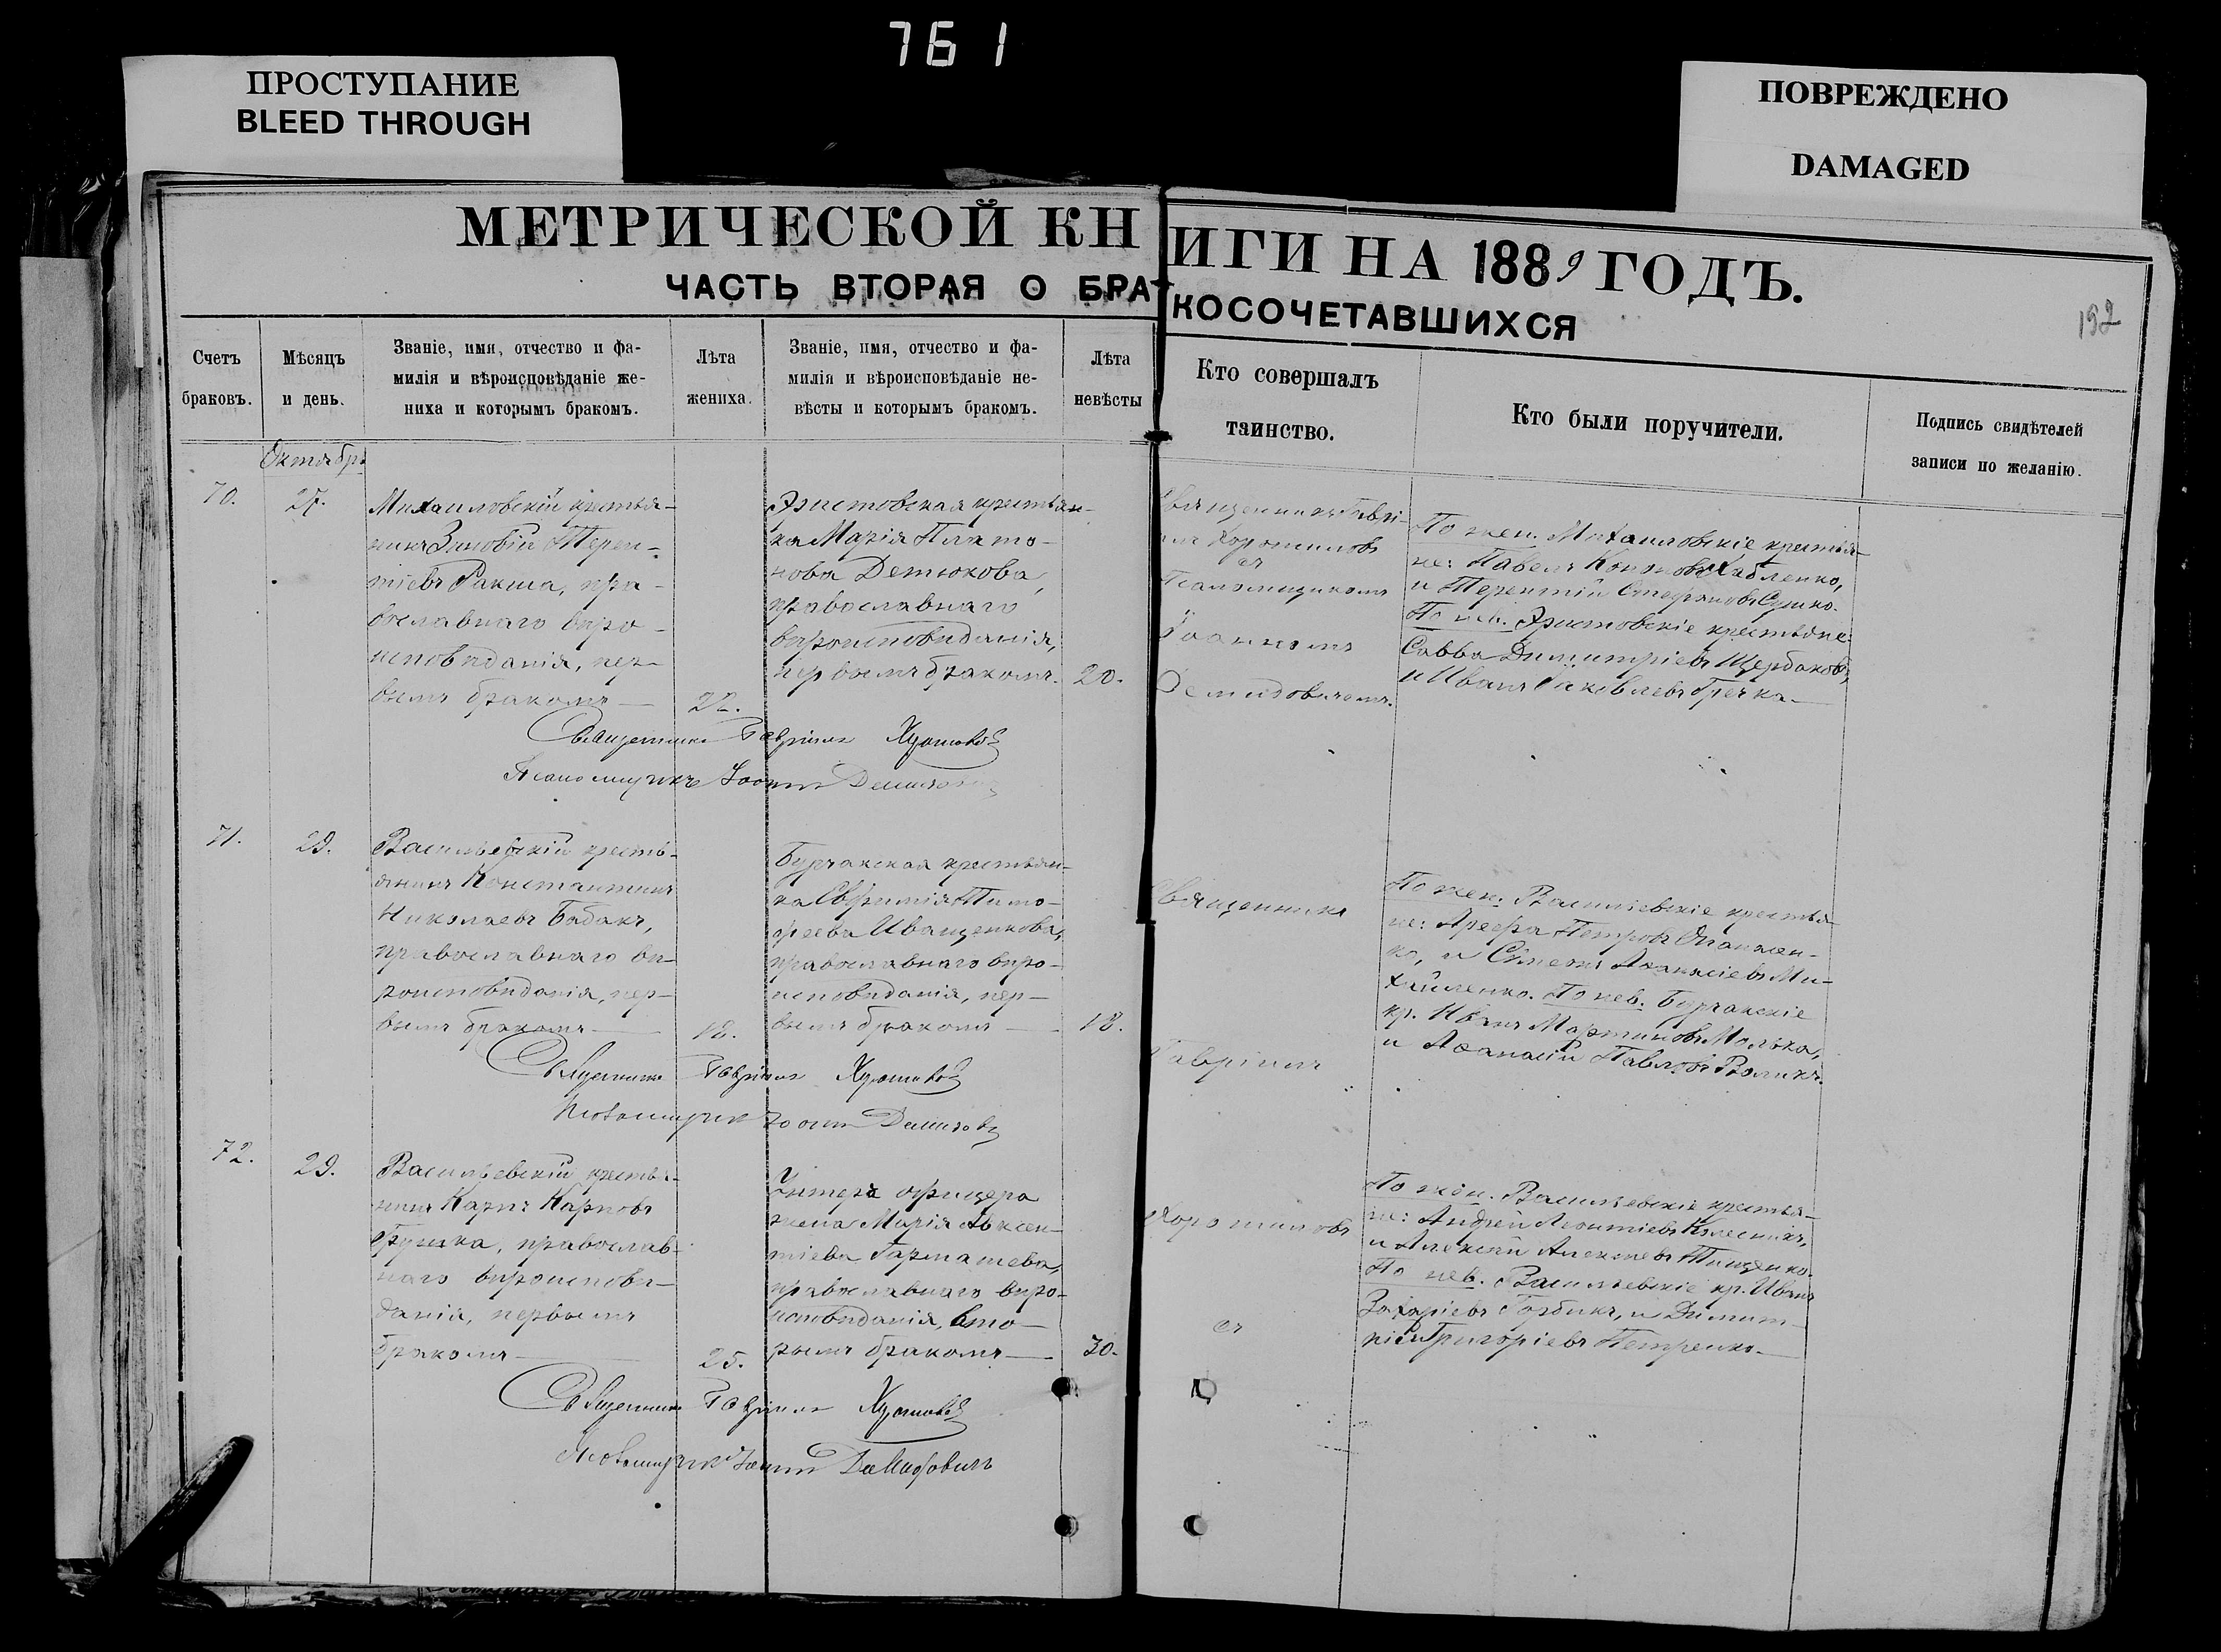 761
ПРОСТУПАНИЕ
BLEED THROUGH
ПОВРЕЖДЕНО
DAMAGED
МЕТРИЧЕСКОЙ КНИГИ НА 1889 ГОДЪ.
ЧАСТЬ ВТОРАЯ О БРАКОСОЧЕТАВШИХСЯ
192
Счетъ
браковъ.
Мѣсяцъ
и день.
Званіе, имя, отчество и фа-
милія и вѣроисповѣданіе же-
ниха и которымъ бракомъ.
Лѣта
жениха.
Званіе, имя, отчество и фа-
милія и вѣроисповѣданіе не-
вѣсты и которымъ бракомъ.
Лѣта
невѣсты
Кто совершалъ
таинство.
Кто были поручители.
Подпись свидѣтелей
записи по желанію.
Октябрь
70.
27.
Михаиловскій крестья-
нинъ Зиновій Терен-
тіевъ Ракша, пра-
вославнаго вѣро-
исповѣданія, пер-
вымъ бракомъ
22.
Эристовская крестьян-
ка Марія Плато-
нова Детюкова,
православнаго
вѣроисповѣданія,
первымъ бракомъ.
20.
Священникъ Гаврі-
илъ Хорошиловъ
съ
Псаломщикомъ
Іоанномъ
Демидовичемъ.
По жен. Михаиловскіе крестья-
не: Павелъ Кононовъ
и Терентій Стефановъ Сушко.
По нев. Эристовскіе крестьяне:
Савва Димитріевъ Щербаковъ,
и Иванъ Іаковлевъ Гречка
Священникъ Гавріилъ Хорошиловъ
Псаломщикъ Іоаннъ Демидович
71.
29.
Васильевскій кресть-
янинъ Константинъ
Николаевъ Бабакъ,
православнаго вѣ-
роисповѣданія, пер-
вымъ бракомъ
18.
Бурчакская крестьян-
ка Евфимія Тимо-
феева Иващенкова,
православнаго вѣро-
исповѣданія, пер-
вымъ бракомъ
18.
Священникъ
Гавріилъ
По жен. Василіевскіе крестья-
не: Арефа Петровъ Опанасен-
ко, и Сѵмеонъ Аѳанасіевъ Ми-
хайленко. По нев. Бурчакскіе
кр. Иванъ Мартиновъ
и Аѳанасій Павловъ Воликъ.
Священникъ Гавріилъ Хорошиловъ
Псаломщикъ Іоаннъ Демидовъ
72.
29.
Васильевскій крестья-
нинъ Карпъ Карповъ
православ-
наго вѣроисповѣ-
данія, первымъ
бракомъ
25.
Унтеръ офицера
жена Марія Авксен-
тіева Гармашева,
православнаго вѣро-
исповѣданія, вто-
рымъ бракомъ
30.
Хорошиловъ
съ
По жен. Васильевскіе крестья-
не: Андрей Леонтіевъ Колесникъ,
и Алексѣй Алексѣевъ Тищенко.
По нев. Васильевскіе кр. Иванъ
Захаріевъ Горбикъ, и Димит-
рій Григоріевъ Петренко.
Священникъ Гавріилъ Хорошиловъ
Псаломщикъ Іоаннъ Демидовичъ